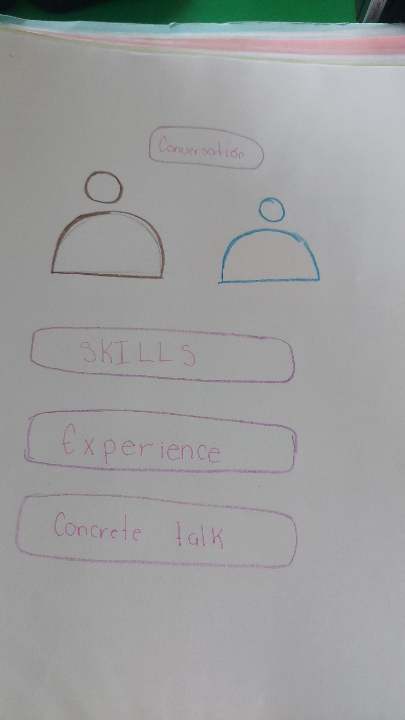 Conversation
SKILLS
Experience
Concrete talk